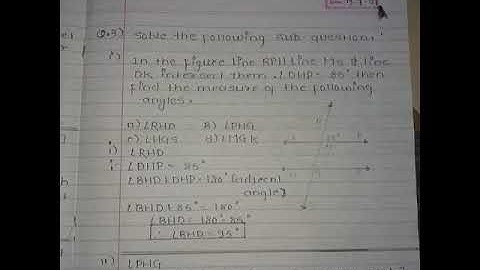 Q.3) Solve the following sub question:
i) In the figure line RP || line MS & line
DK intersect them. ∠DHP = 85° then
find the measure of the following
angles.
a) ∠RHD B) ∠PHG
c) ∠HGS d) ∠MGK
i) ∠RHD
∠DHP = 85°
∠BHD + DHP = 180° (adjecent
angle)
∠BHD + 85° = 180°
∠BHD = 180° - 85°
∴ ∠BHD = 95°
ii) ∠PHG